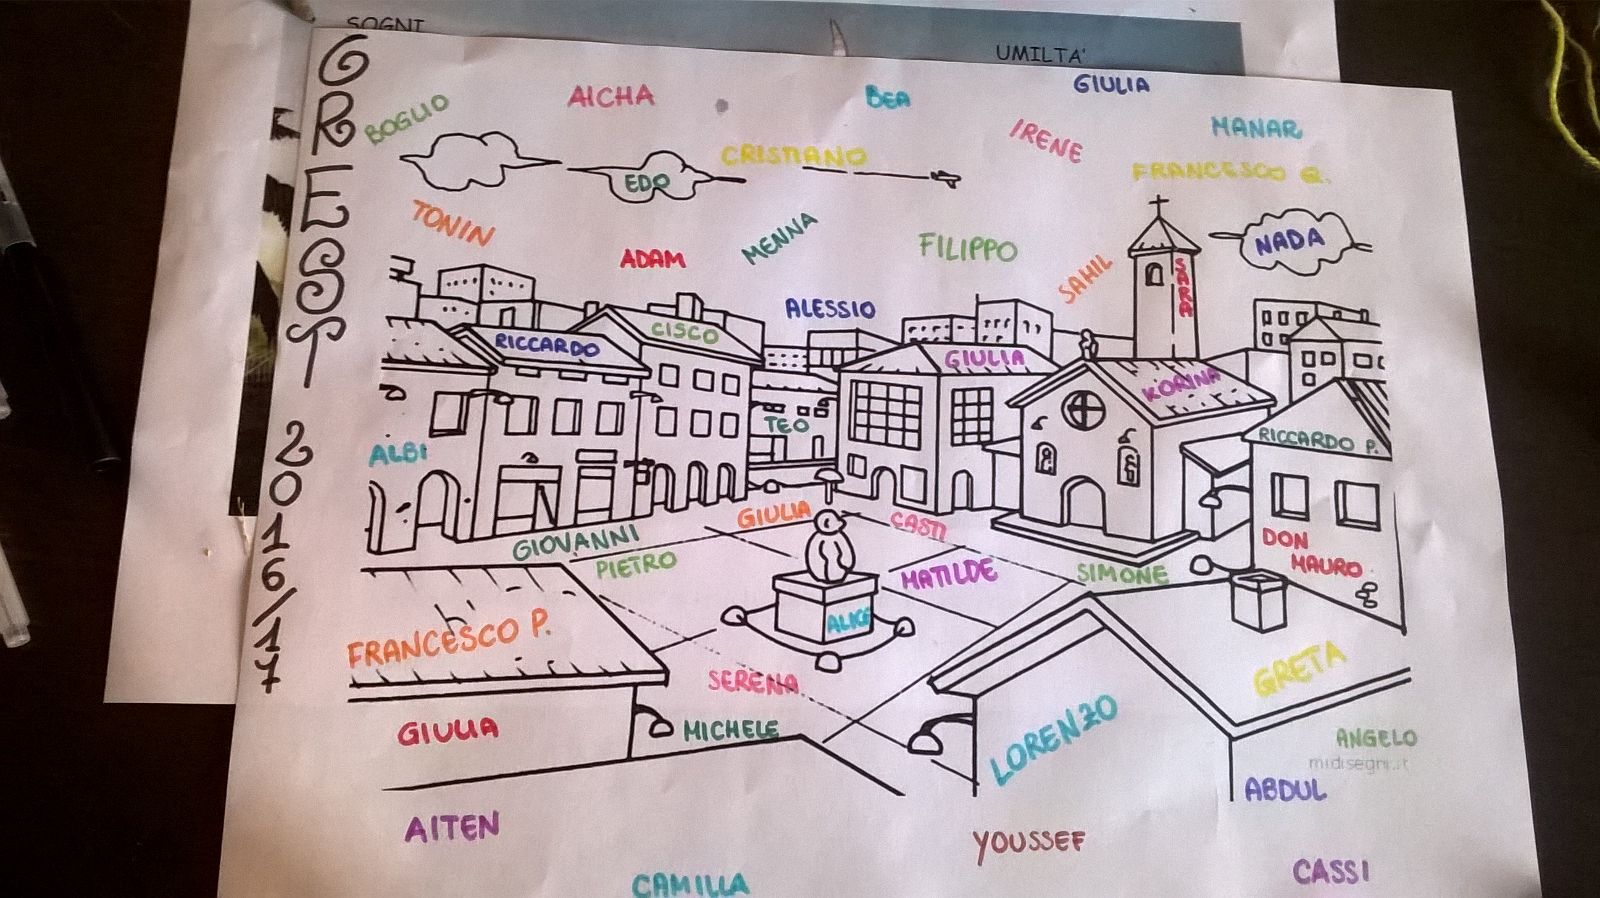 SOGNI
UMILTA'
GREST 2016/17
GIULIA
AICHA
BEA
BOGLIO
MANAR
IRENE
CRISTIANO
FRANCESCO G.
EDO
TONIN
MENNA
NADA
FILIPPO
ADAM
SAHIL
SARA
ALESSIO
CISCO
RICCARDO
GIULIA
KORINA
TEO
RICCARDO P.
ALBI
GIULIA
CASTI
GIOVANNI
DON
MAURO
PIETRO
MATILDE
SIMONE
ALICE
FRANCESCO P.
GRETA
SERENA
GIULIA
MICHELE
LORENZO
ANGELO
midisegni.it
ABDUL
AITEN
YOUSSEF
CASSI
CAMILLA